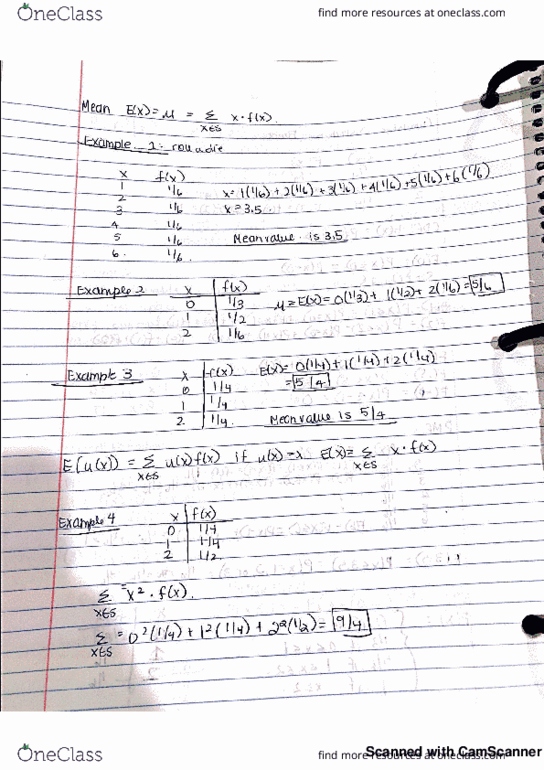 OneClass
find more resources at oneclass.com
Mean E(x) = μ = Σ x·f(x).
x∈S
Example 1: roll a die
x f(x)
1 1/6
2 1/6 x = 1(1/6) + 2(1/6) + 3(1/6) + 4(1/6) + 5(1/6) + 6(1/6)
3 1/6 x = 3.5.
4 1/6
5 1/6 Mean value is 3.5
6 1/6
Example 2 x f(x)
0 1/3 μ = E(x) = 0(1/3) + 1(1/2) + 2(1/6) = 5/6
1 1/2
2 1/6
Example 3 x f(x) E(x) = 0(1/4) + 1(1/4) + 2(1/4)
0 1/4 = 5/4
1 1/4
2 1/4 Mean value is 5/4
E[u(x)] = Σ u(x) f(x) if u(x) = x E(x) = Σ x·f(x)
x∈S x∈S
Example 4 x f(x)
0 1/4
1 1/4
2 1/2
Σ = x²·f(x)
x∈S
Σ = 0²(1/4) + 1²(1/4) + 2²(1/2) = 9/4
x∈S
OneClass
find more resources at oneclass.com
Scanned with CamScanner